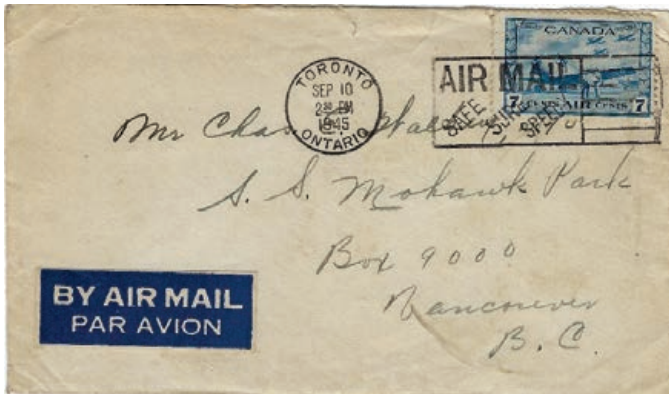 CANADA
7 CENTS AIR CENTS 7
TORONTO
SEP 10
PM
1945
ONTARIO
AIR MAIL
SAFE SURE SPEEDY
Mr Chas.
S. S. Mohawk Park
Box 9000
Vancouver
B. C.
BY AIR MAIL
PAR AVION